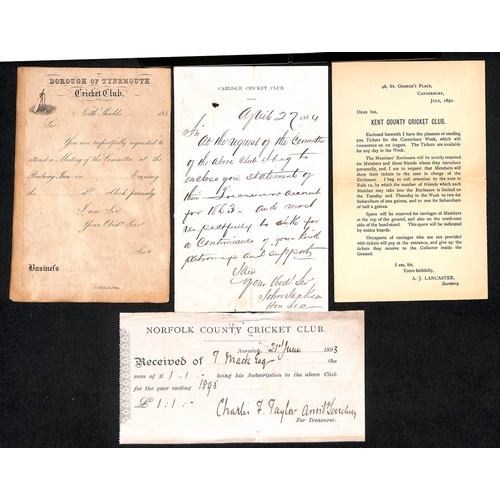 BOROUGH OF TYNEMOUTH
Cricket Club.
North Shields 185
Sir
You are respectfully requested to
attend a Meeting of the Committee, at the
Railway Inn on Evening
the at o'Clock precisely
I am Sir
Your Obdt. Servt.
Secy
Business
CARLISLE CRICKET CLUB.
April 27 1864
Sir
At the request of the Committee
of the above Club I beg to
enclose you statement of
their Treasurers account
for 1863 and most
respectfully to ask for
a Continuance of your kind
patronage and support
I am
Your Obed Sr
John
Hon Sec
46, ST. GEORGE'S PLACE,
CANTERBURY,
JULY, 1890.
DEAR SIR,
KENT COUNTY CRICKET CLUB.
Enclosed herewith I have the pleasure of sending
you Tickets for the Canterbury Week, which will
commence on August 4th. The Tickets are available
for any day in the Week.
The Members' Enclosure will be strictly reserved
for Members and those friends whom they may
personally introduce, and I am to request that Members
will show their tickets to the men in charge of the
Enclosure. I beg to call attention to the
Rule 10, by which the number of friends which each
Member may take into the Enclosure is limited on
the Tuesday and Thursday in the Week to two for
Subscribers of one guinea, and to one for Subscribers
of half a guinea.
Space will be reserved for carriages of Members
at the top of the ground, also on the south-east side
of the land-stand. This space will be indicated by
notice boards.
Occupants of carriages who are not provided
with tickets will pay at the entrance, and give up the
tickets they receive to the Collector inside the
Ground.
I am, Sir,
Yours faithfully,
A. J. LANCASTER,
Secretary.
NORFOLK COUNTY CRICKET CLUB.
Norwich, 21st June 1893
Received of T Mack Esq the
sum of £ 1 - 1 : - being his Subscription to the above Club
for the year ending 1893
£ 1 : 1 : -
Charles F. Taylor Asst Secretary
For Treasurer.